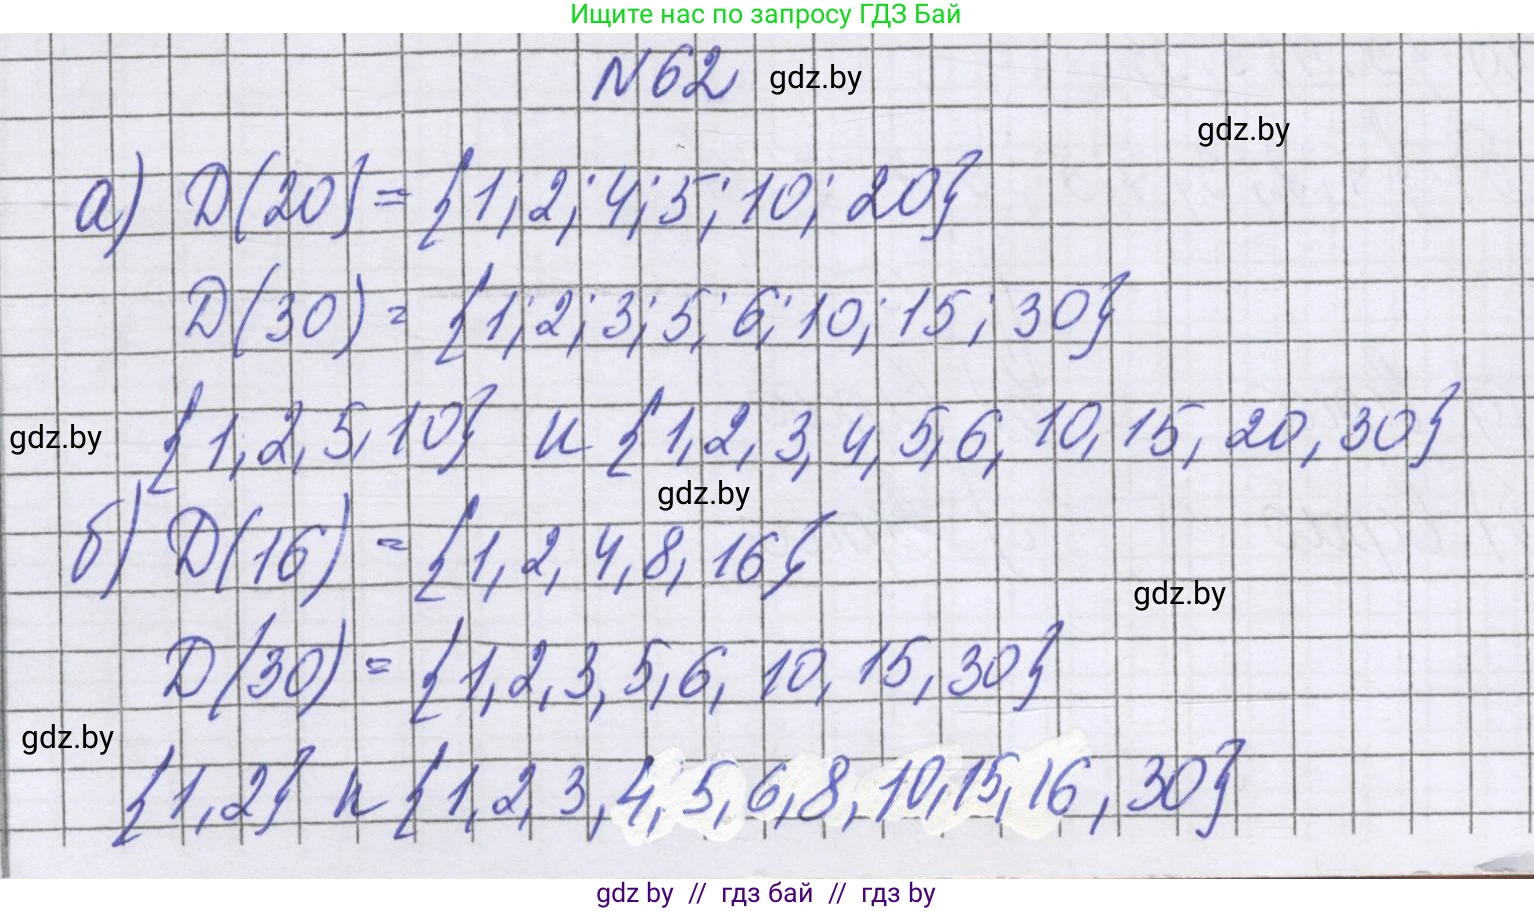 Ищите нас по запросу ГДЗ Бай
№62 gdz.by
gdz.by
а) D(20]= {1; 2; 4; 5; 10; 20}
D(30) = {1; 2; 3; 5; 6; 10; 15; 30}
gdz.by {1, 2, 5, 10} и {1, 2, 3, 4, 5, 6, 10, 15, 20, 30}
gdz.by
б) D(16) = {1, 2, 4, 8, 16}
gdz.by
D(30) = {1, 2, 3, 5, 6, 10, 15, 30}
gdz.by
{1, 2} и {1, 2, 3, 4, 5, 6, 8, 10, 15, 16, 30}
gdz by // гдз бай // гдз by